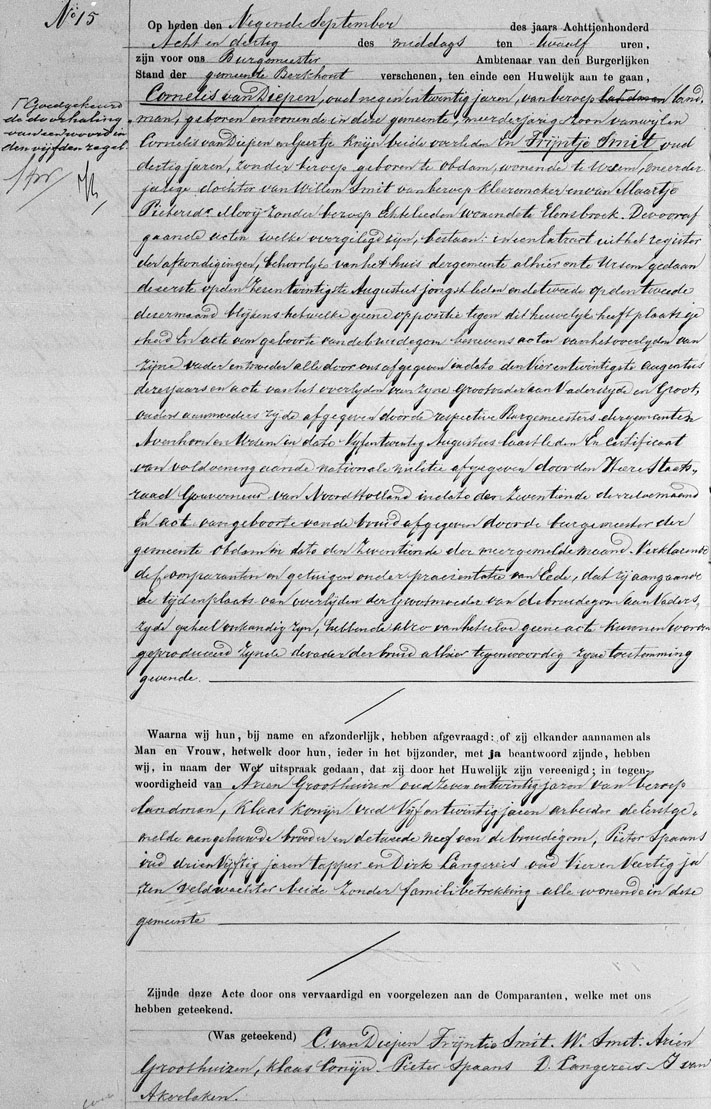 No 15
Op heden den Negende September des jaars Achttienhonderd
Acht en dertig des middags ten twaalf uren,
zijn voor ons Burgemeester Ambtenaar van den Burgerlijken
Stand der gemeente Berkhout verschenen, ten einde een Huwelijk aan te gaan,
Goedgekeurd
de doorhaling
van een woord in
den vijfden regel
Cornelis van Diepen, oud negen en twintig jaren, van beroep land-
man, geboren en wonende in deze gemeente, meerderjarige zoon van wijlen
Cornelis van Diepen en Geertje Knijn beide overleden En Trijntje Smit oud
dertig jaren, zonder beroep geboren te Obdam, wonende te Ursem, meerder
jarige dochter van Willem Smit van beroep kleermaker en van Maartje
Pieterdr Mooij zonder beroep Echtelieden wonende te Hensbroek. De vooraf
gaande acten welke overgelegd zijn, bestaan: in een Extract uit het register
der afkondigingen, behoorlijk van het huis der gemeente alhier en te Ursem gedaan
de eerste op den Zes en twintigste Augustus jongstleden en de tweede op den tweede
dezer maand blijkens hetwelke geene oppositie tegen dit huwelijk heeft plaats ge
had En acte van geboorte van de bruidegom benevens acten van het overlyden van
zijne vader en moeder alle door ons afgegeven in dato den Vier en twintigste Augustus
dezes jaars en acte van het overlyden van zijne Grootvader aan Vaderszyde en Groot
ouders aan moeders zijde afgegeven door de respective Burgemeesters der gemeenten
Avenhorn en Ursem in dato Vijf en twintig Augustus laastleden En Certificaat
van voldoening aan de nationale militie afgegeven door den Heere Staats-
raad Gouverneur van Noord Holland in dato den Zeventiende derzelve maand
En act van geboorte van de bruid afgegeven door de burgemeester der
gemeente Obdam in dato den Zeventiende der meergemelde maand. Verklarende
de comparanten en getuigen onder praesentatie van Eede, dat zij aangaande
de tijd en plaats van overlijden der Grootmoeder van de bruidegom aan Vaders-
zyde geheel onkundig zyn, hebbende alzo van hetzelve geene acte kunnen worden
geproduceerd Zijnde de vader der bruid alhier tegenwoordig zijne toestemming
gevende.
Waarna wij hun, bij name en afzonderlijk, hebben afgevraagd: of zij elkander aannamen als
Man en Vrouw, hetwelk door hun, ieder in het bijzonder, met ja beantwoord zijnde, hebben
wij, in naam der Wet uitspraak gedaan, dat zij door het Huwelijk zijn vereenigd; in tegen-
woordigheid van Arien Groothuizen oud zeven en twintig jaren van beroep
landman, Klaas Konijn oud Vijf en twintig jaren arbeider de Eerstge-
melde aangehuwde broeder en de tweede neef van de bruidegom, Pieter Spaans
oud drie en Vijftig jaren tapper en Dirk Langereis oud Vier en Veertig ja
ren veldwachter beide zonder familiebetrekking alle wonende in deze
gemeente
Zijnde deze Acte door ons vervaardigd en voorgelezen aan de Comparanten, welke met ons
hebben geteekend.
(Was geteekend) C. van Diepen Trijntie Smit. W. Smit. Arien
Groothuizen, Klaas Conijn Pieter Spaans D. Langereis J van
Akerlaken.